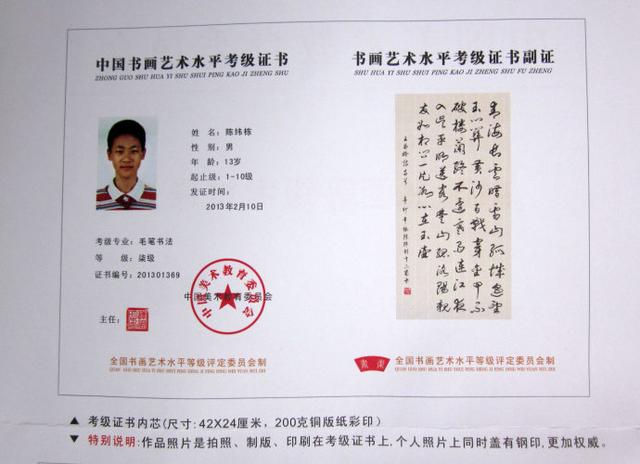 中国书画艺术水平考级证书
ZHONG GUO SHU HUA YI SHU SHUI PING KAO JI ZHENG SHU
姓名：陈炜栋
性别：男
年龄：13岁
起止级：1-10级
发证时间：
2013年2月10日
考级专业：毛笔书法
等级：柒级
证书编号：201301369
中国美术教育委员会
中国美术教育委员会
主任：
全国书画艺术水平等级评定委员会制
书画艺术水平考级证书副证
SHU HUA YI SHU SHUI PING KAO JI ZHENG SHU FU ZHENG
青海長雲暗雪山孤城遥望
玉門關黄沙百戰穿金甲不
破樓蘭終不還寒雨連江夜
入吴平明送客楚山孤洛陽親
友如相問一片冰心在玉壺
全国书画艺术水平等级评定委员会制
▲ 考级证书内芯(尺寸：42X24厘米，200克铜版纸彩印)
▼ 特别说明：作品照片是拍照、制版、印刷在考级证书上，个人照片上同时盖有钢印，更加权威。